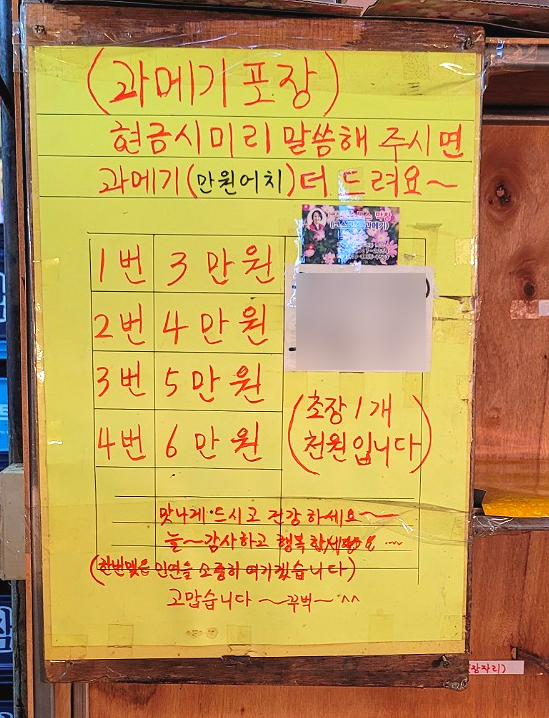 (과메기포장)
현금시미리 말씀해 주시면
과메기(만원어치)더 드려요~
1번 3만원
2번 4만원
3번 5만원
4번 6만원
(초장1개
천원입니다)
맛나게·드시고 건강하세요~
늘~감사하고 행복합세요 ....
(한번맺은 인연을 소중히 여기겠습니다)
고맙습니다 ~꾸벅~^^